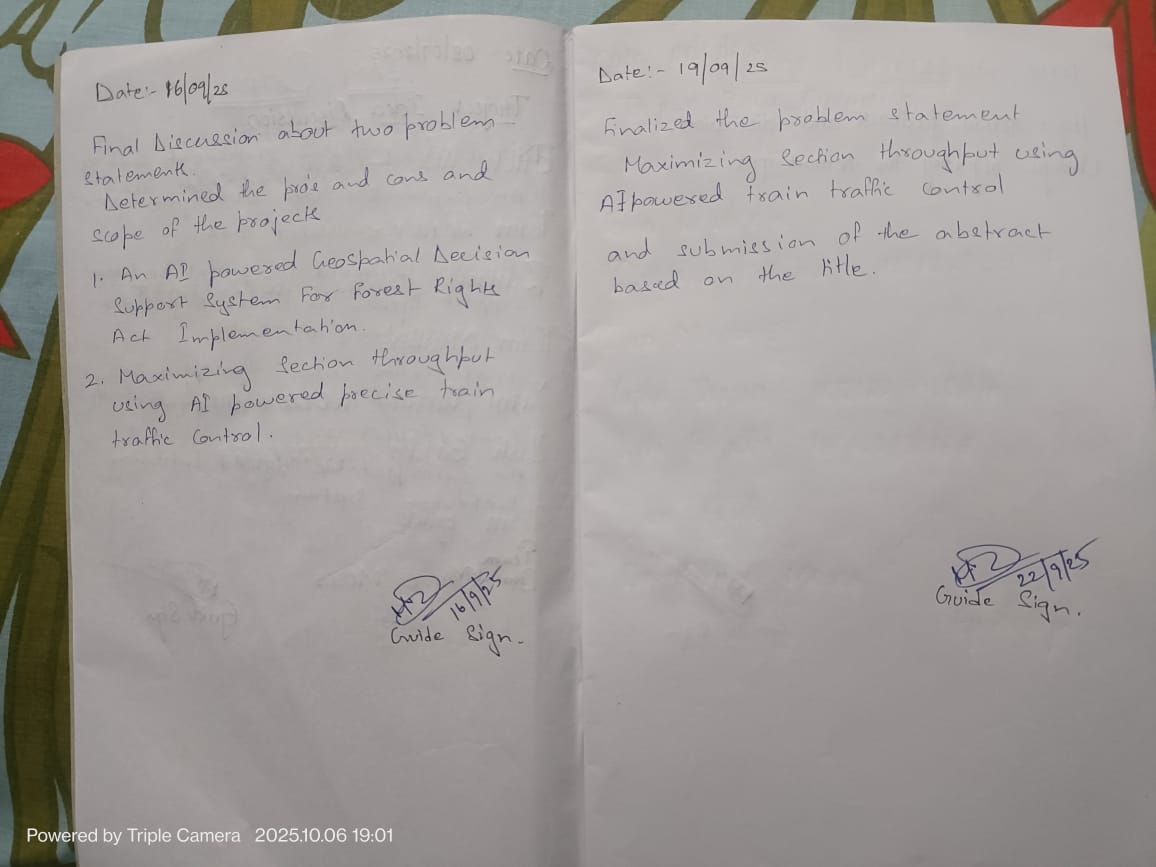 Date:- 16/09/25
Final Discussion about two problem
statements.
Determined the pro's and cons and
scope of the projects
1. An AI powered Geospatial Decision
Support System For Forest Rights
Act Implementation.
2. Maximizing Section throughput
using AI powered precise train
traffic control.
16/9/25
Guide Sign.
Date:- 19/09/25
Finalized the problem statement
Maximizing Section throughput using
AI powered train traffic control
and submission of the abstract
based on the title.
22/9/25
Guide Sign.
Powered by Triple Camera 2025.10.06 19:01